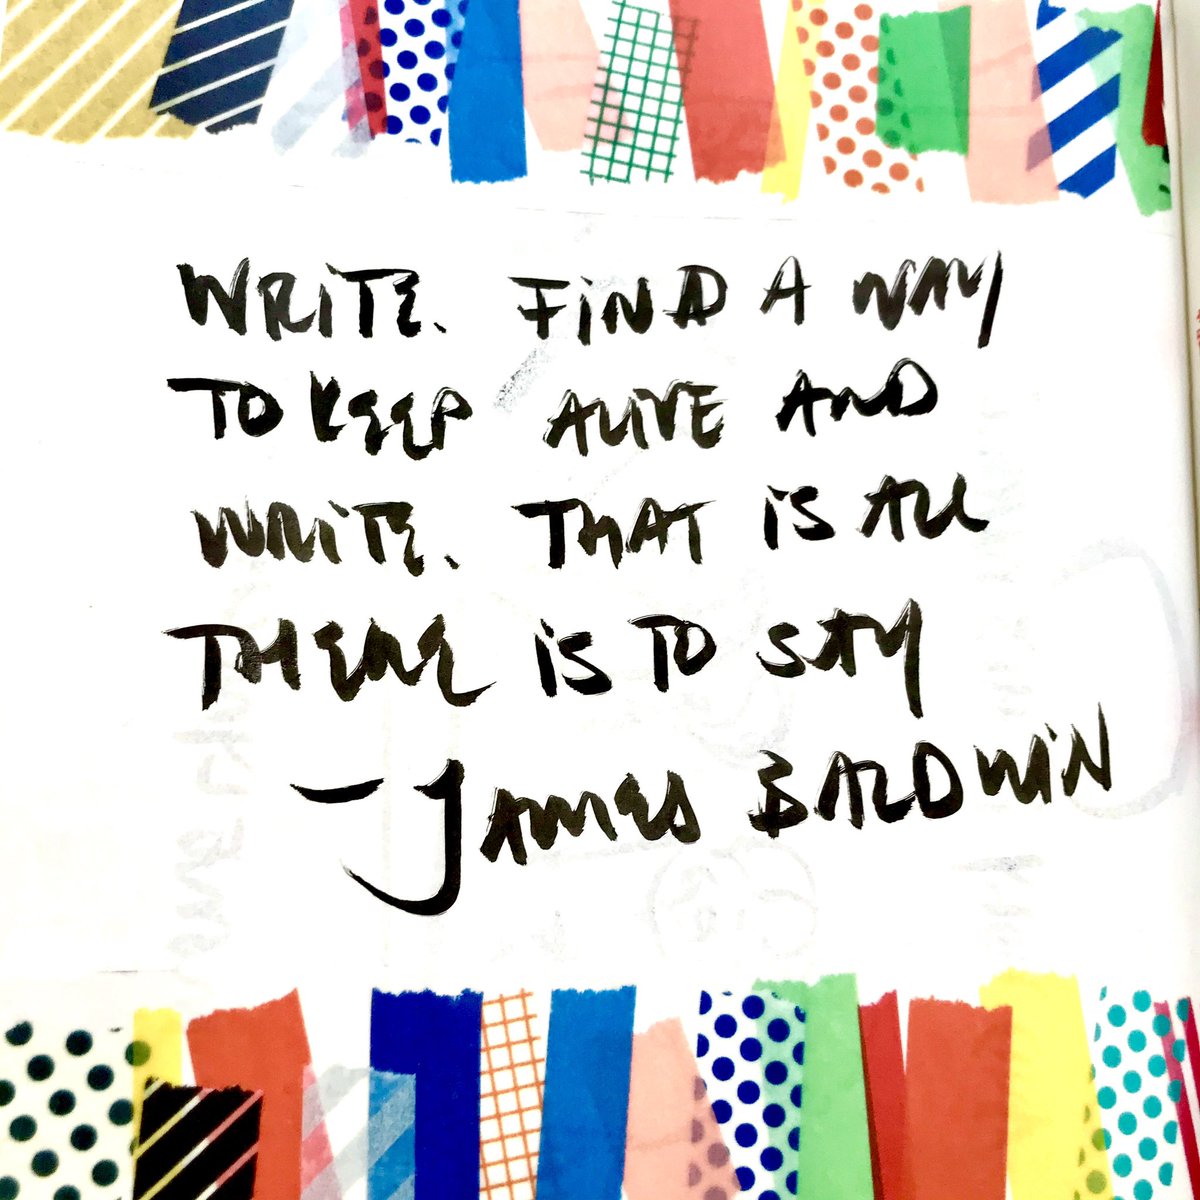 WRITE. FIND A WAY
TO KEEP ALIVE AND
WRITE. THAT IS ALL
THERE IS TO SAY
- JAMES BALDWIN